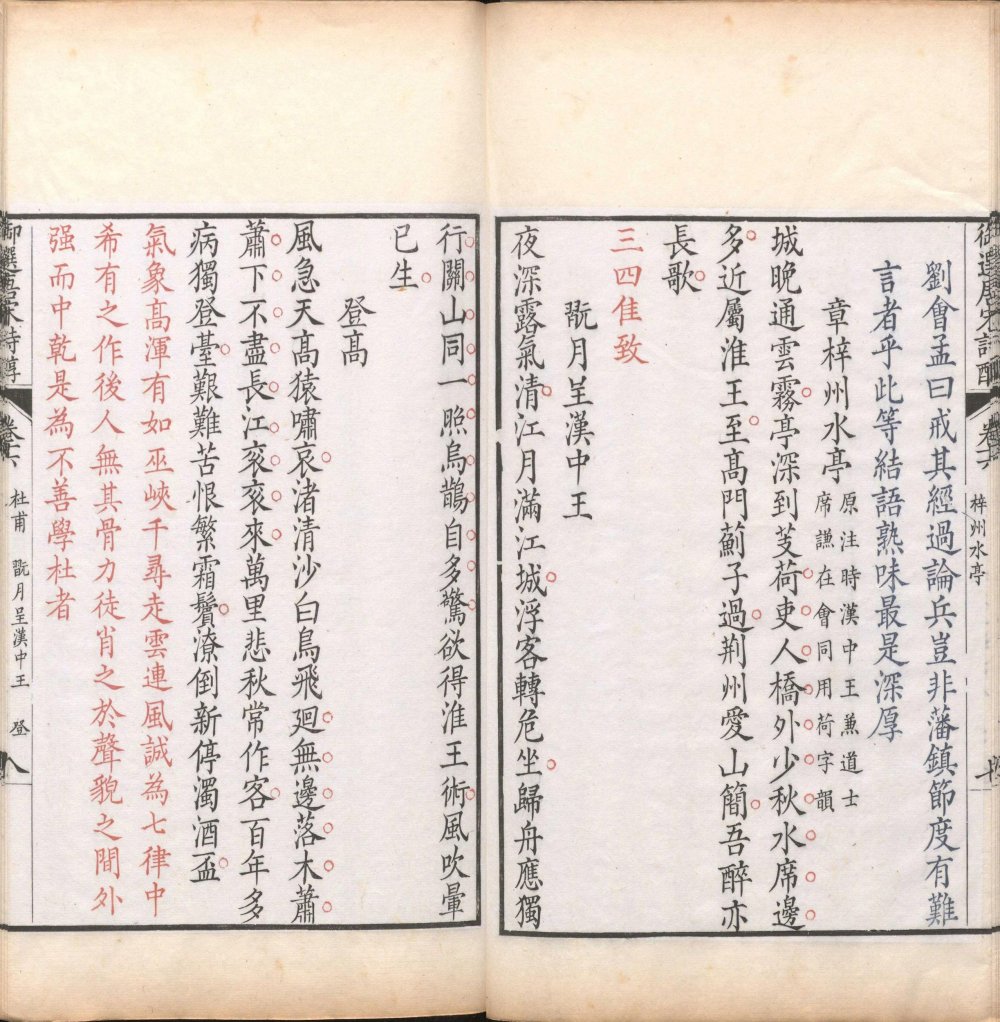 劉會孟曰戒其經過論兵豈非藩鎮節度有難
言者乎此等結語熟味最是深厚
章梓州水亭
原注時漢中王蕙道士
席謙在會同用荷字韻
城晚通雲霧亭深到芰荷吏人橋外少秋水席邊
多近屬淮王至高門薊子過荆州愛山簡吾醉亦
長歌
三四佳致
翫月呈漢中王
夜深露氣清江月滿江城浮客轉危坐歸舟應獨
梓州水亭
行關山同一照烏鵲自多驚欲得淮王術風吹暈
已生
登高
風急天高猿嘯哀渚清沙白鳥飛廻無邊落木蕭
蕭下不盡長江衮衮來萬里悲秋常作客百年多
病獨登臺艱難苦恨繁霜鬢潦倒新停濁酒盃
氣象高渾有如巫峽千尋走雲連風誠為七律中
希有之作後人無其骨力徒肖之於聲貌之間外
强而中乾是為不善學杜者
御選唐宋詩醇
卷六
杜甫 翫月呈漢中王 登
八